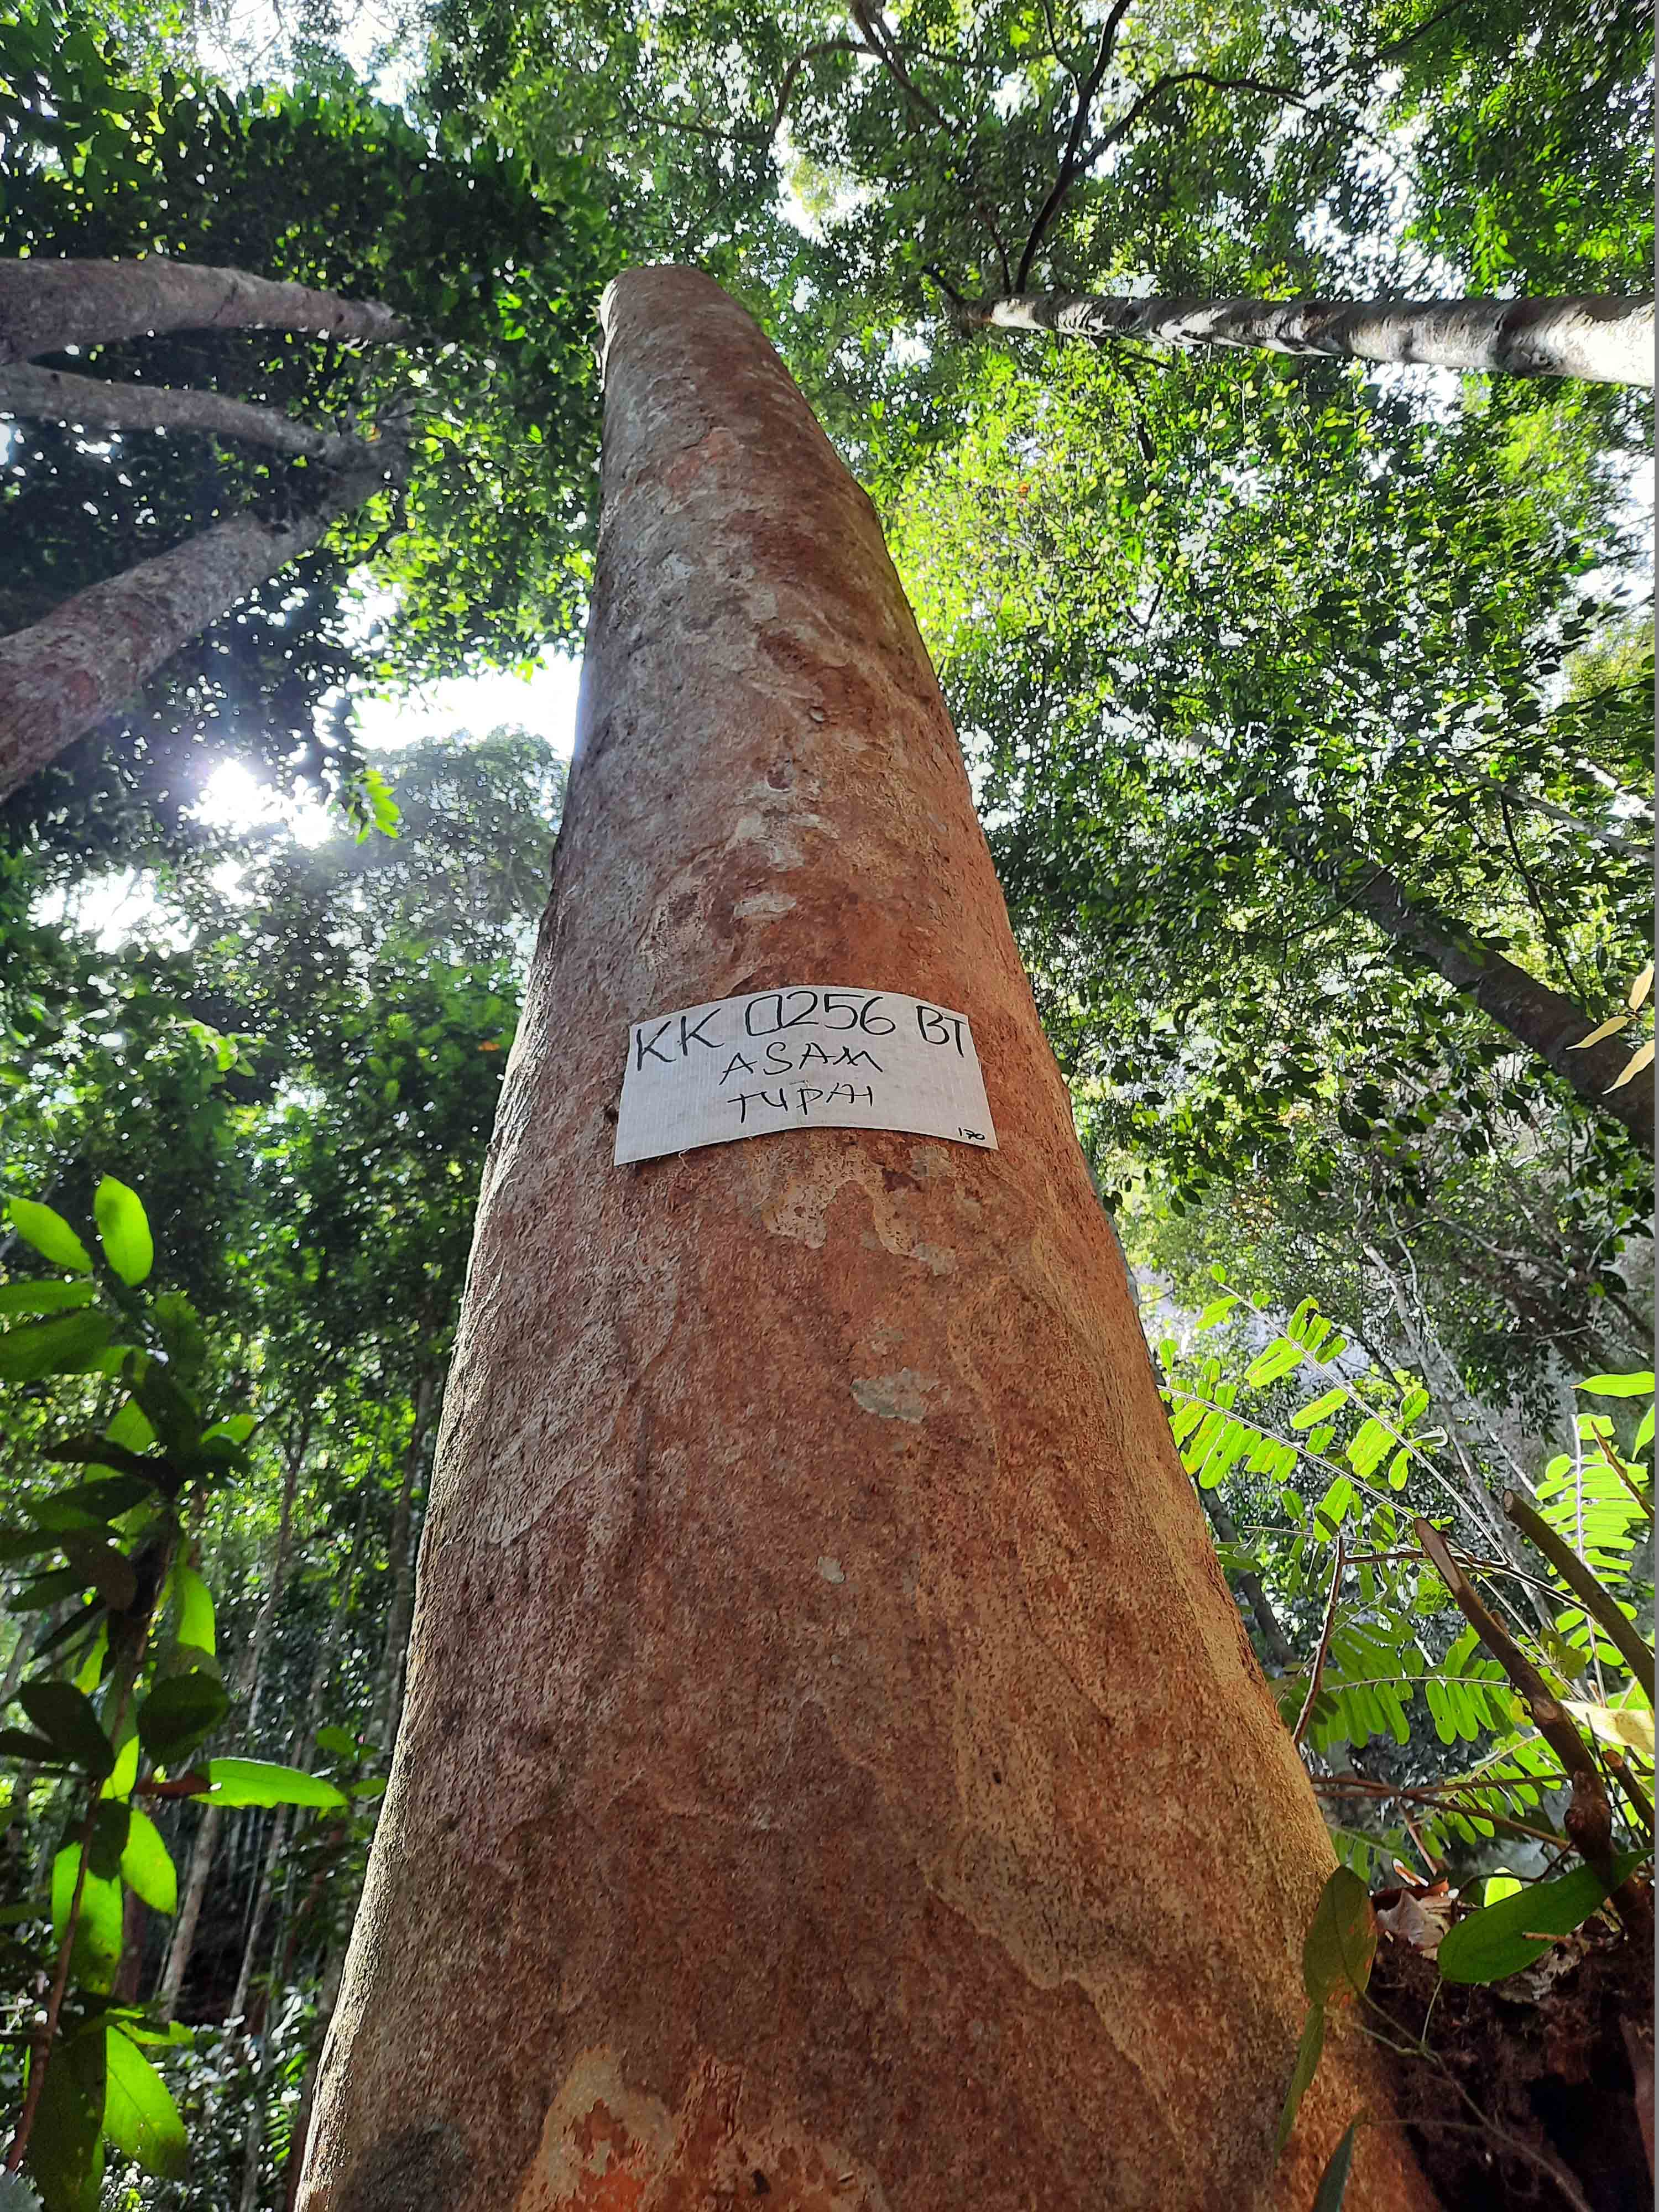 KK 0256 BT
ASAM
TUPAI
170